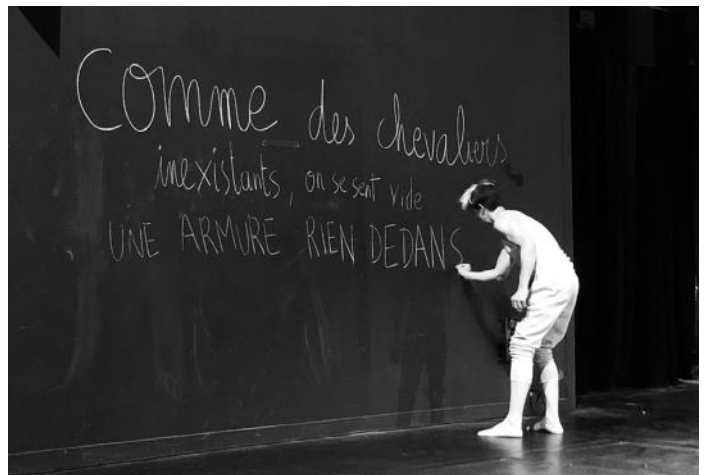 Comme des chevaliers
inexistants, on se sent vide
UNE ARMURE RIEN DEDANS